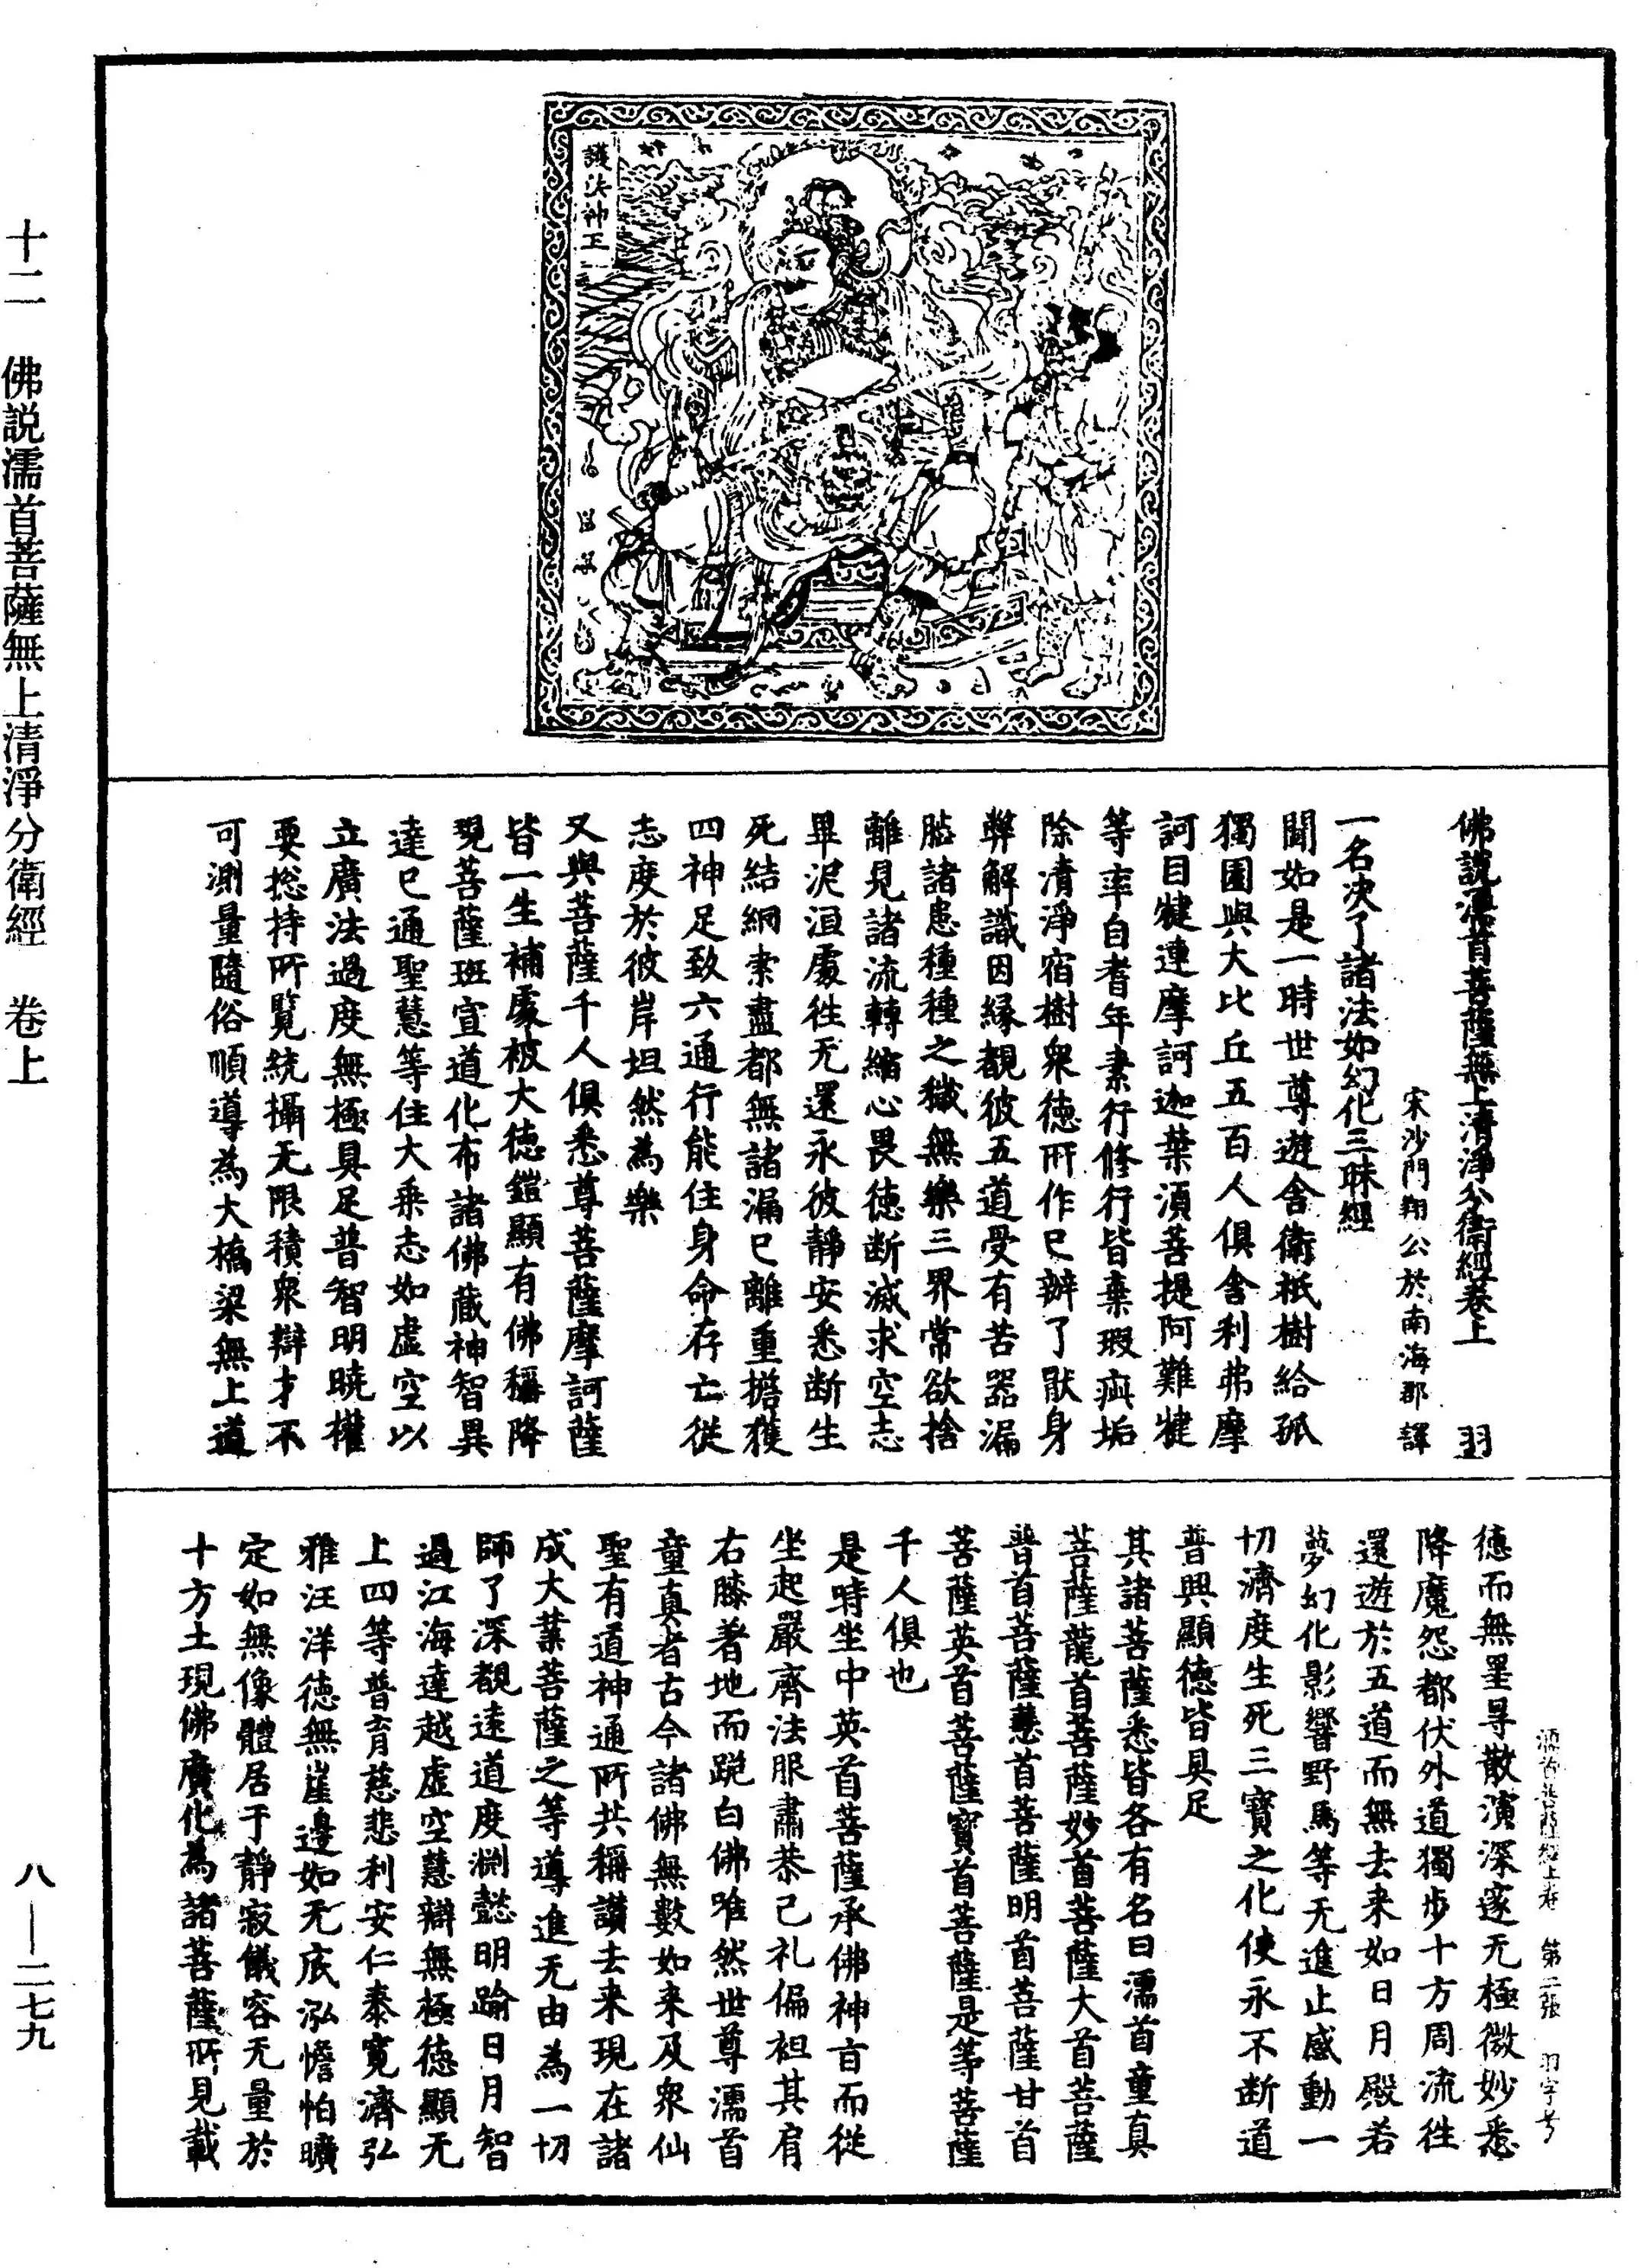 護法神王
佛説濡首菩薩無上清淨分衛經卷上 羽
宋沙門翔公於南海郡譯
一名决了諸法如幻化三昧經
聞如是一時世尊遊舍衛衹樹給孤
獨園與大比丘五百人俱舍利弗摩
訶目犍連摩訶迦葉湏菩提阿難犍
等率自耆年素行修行皆棄瑕疵垢
除清淨宿樹衆徳所作已辦了猒身
弊解識因緣覩彼五道受有苦器漏
臈諸患種種之穢無樂三界常欲捨
離見諸流轉縮心畏徳断滅求空志
畢泥洹處徃无還永彼靜安悉断生
死結網索盡都無諸漏已離重擔獲
四神足致六通行能住身命存亡從
志度於彼岸坦然為樂
又與菩薩千人俱悉尊菩薩摩訶薩
皆一生補處被大徳鎧顯有佛稱降
現菩薩班宣道化布諸佛藏神智異
達已通聖慧等住大乗志如虛空以
立廣法過度無極具足普智明曉權
要捴持所覧統攝无限積衆辯才不
可測量隨俗順導為大橋梁無上道
濡首菩薩經上卷 第二張 羽字号
徳而無罣导散演深邃无極微妙悉
降魔怨都伏外道獨步十方周流徃
還遊於五道而無去来如日月殿若
夢幻化影響野馬等无進止感動一
切濟度生死三寶之化使永不断道
普興顯徳皆具足
其諸菩薩悉皆各有名曰濡首童真
菩薩龍首菩薩妙首菩薩大首菩薩
普首菩薩慧首菩薩明首菩薩甘首
菩薩英首菩薩寶首菩薩是等菩薩
千人俱也
是時坐中英首菩薩承佛神㫖而従
坐起嚴齊法服肅恭己礼偏袒其肩
右膝著地而跪白佛唯然世尊濡首
童真者古今諸佛無數如来及衆仙
聖有道神通所共稱讃去来現在諸
成大業菩薩之等導進无由為一切
師了深覩逺道度淵懿明踰日月智
過江海達越虛空慧辯無極徳顯无
上四等普育慈悲利安仁泰寬濟弘
雅汪洋徳無崖邊如无底泓憺怕曠
定如無像體居于靜寂儀容无量於
十方土現佛廣化為諸菩薩所見載
十二 佛説濡首菩薩無上清淨分衛經 卷上
八—二七九